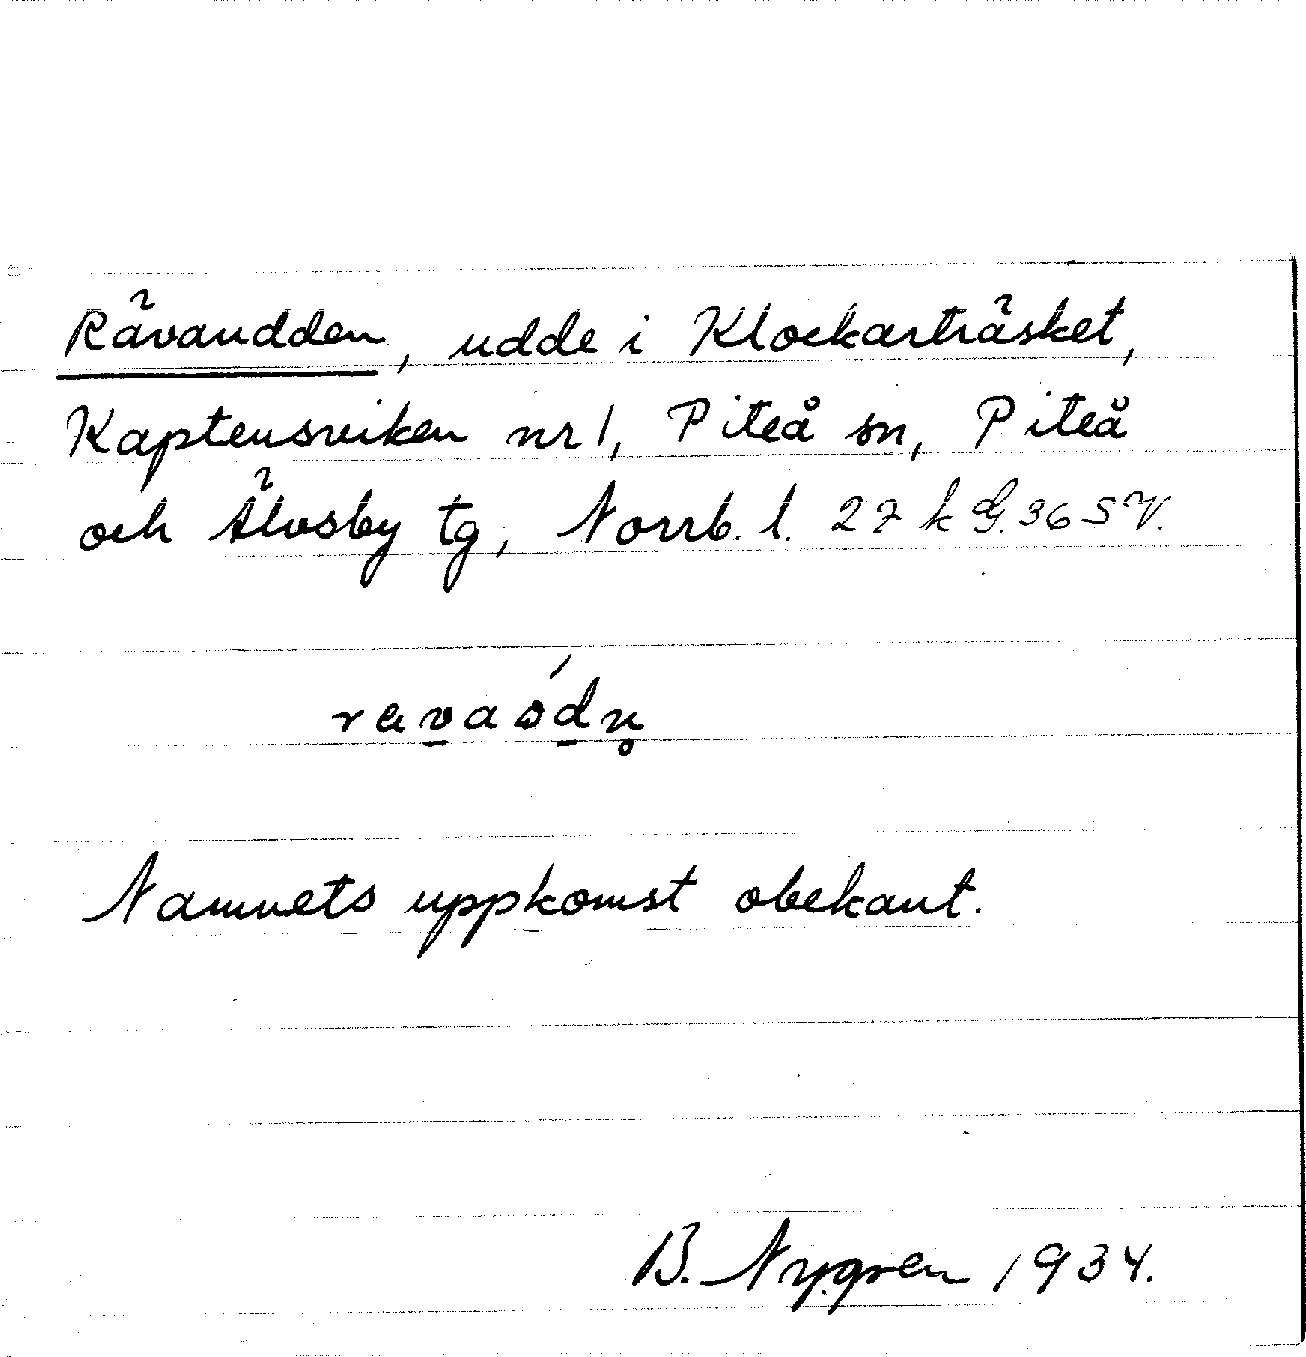 Rävaudden, udde i Klockarträsket,
Kaptensviken nr 1, Piteå sn, Piteå
och Älvsby tg, Norrb. l. 27 k G. 36 SV.
Namnets uppkomst obekant.
B. Nygren 1934.